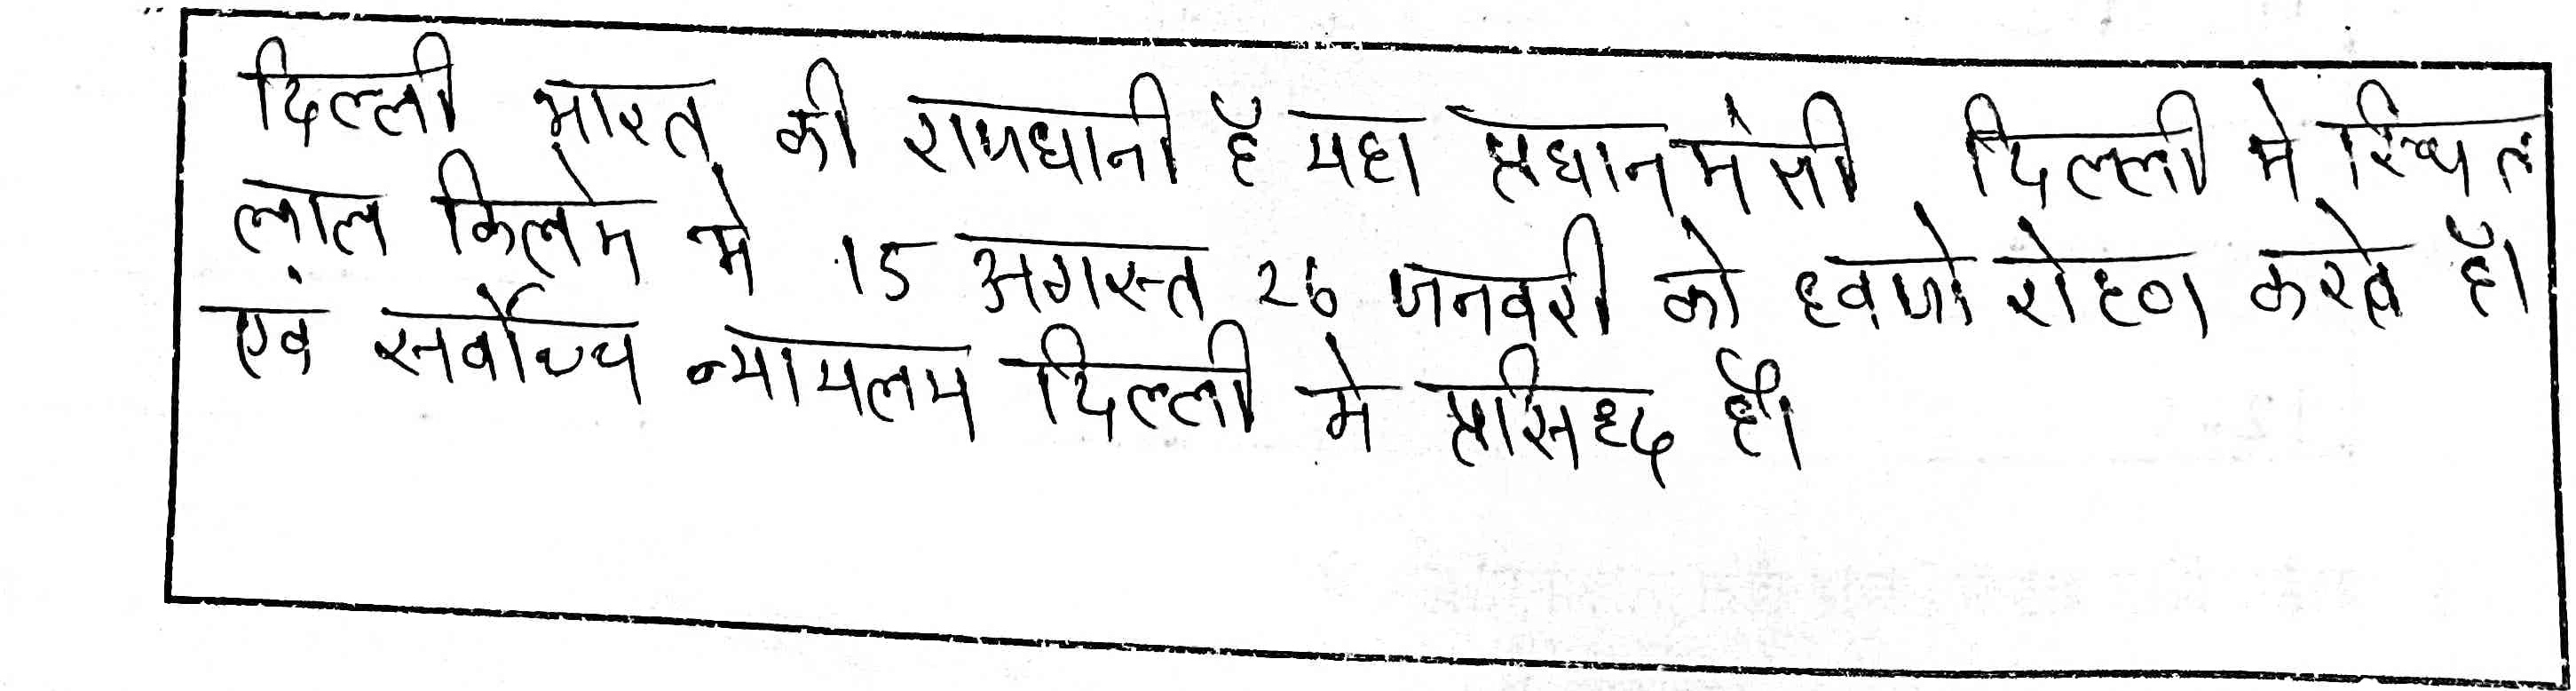 दिल्ली भारत की राजधानी हैं यहा प्रधानमंत्री दिल्ली मे स्थित
लाल किलेम मे 15 अगस्त 26 जनवरी को ध्वजो रोहण करते हैं।
एवं सर्वोच्च न्यायलय दिल्ली मे प्रसिध्द है।